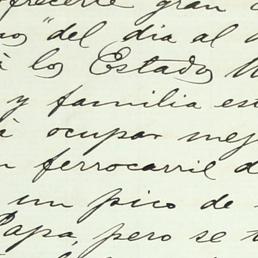 ofrecerte gran
" del dia al
à los Estados
y familia es
à ocupar mej
ferrocarril d
un pico de
Papa, pero se t